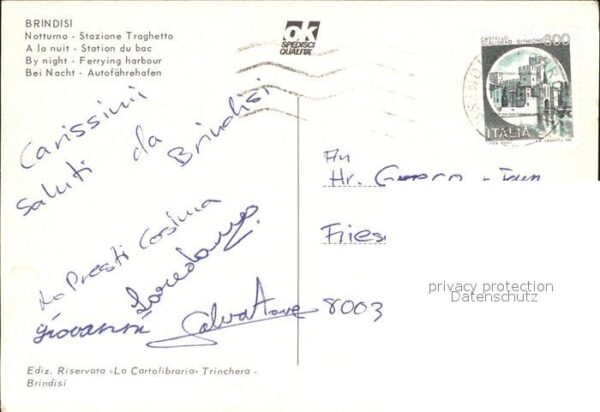 BRINDISI
Notturno - Stazione Traghetto
A la nuit - Station du bac
By night - Ferrying harbour
Bei Nacht - Autofährehafen
ok
SPEDISCI
QUALITÀ
CASTELLO
800
ITALIA
Carissimi
Saluti da Brindisi
Lo Presti Cosima
Loredana
Giovanni Salvatore
An
Hr.
8003
privacy protection
Datenschutz
Ediz. Riservata «La Cartolibraria» Trinchera -
Brindisi